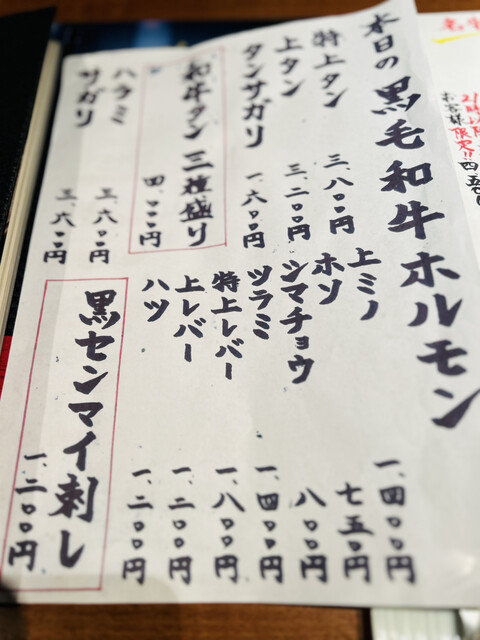 本日の黒毛和牛ホルモン
特上タン 三、八〇〇円
上タン 三、二〇〇円
タンサガリ 一、六〇〇円
和牛タン三種盛り 四、〇〇〇円
ハラミ 三、六〇〇円
サガリ 三、六〇〇円
上ミノ 一、四〇〇円
ホソ 七五〇円
シマチョウ 八〇〇円
ツラミ 一、四〇〇円
特上レバー 一、八〇〇円
上レバー 一、二〇〇円
ハツ 一、二〇〇円
黒センマイ刺し 一、二〇〇円
お客様限定!!